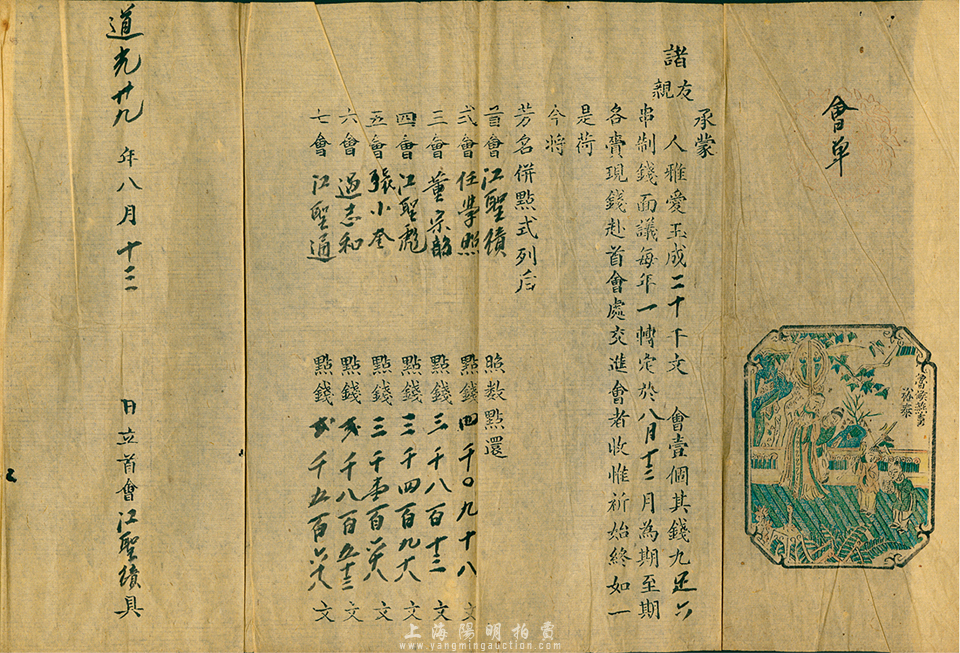 會單
諸親友
承蒙
人雅愛玉成二十千文 會壹個其錢九足六
串制錢面議每年一轉定於八月十三月為期至期
各賫現錢赴首會處交進會者收惟祈始終如一
是荷
今將
芳名併點式列后
首會江聖績 照数點還
弍會任學照 點錢四千〇九十八文
三會董宗韶 點錢三千八百十三文
四會江聖彪 點錢三千四百九十八文
五會張小奎 點錢三千壹百六十八文
六會過志和 點錢弍千八百五十三文
七會江聖通 點錢弍千五百六十八文
道光廿九年八月十三日立首會江聖績具
裕泰
上海陽明拍賣
www.yangmingauction.com